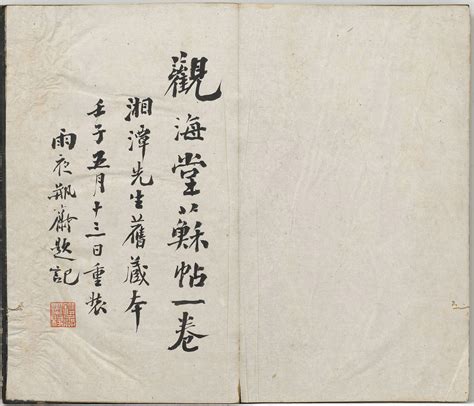 觀海堂蘇帖一卷
湘潭先生舊藏本
壬子五月十三日重裝
雨夜瓶齋題記